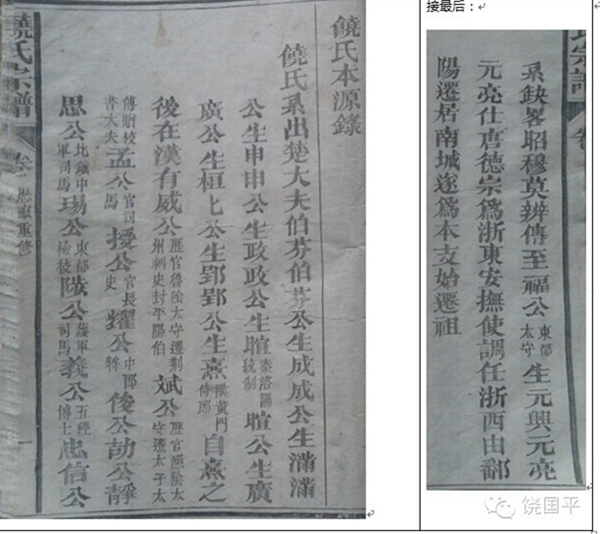 接最后：
饒氏宗譜 卷一 歷軍重修 一
饒氏本源錄
饒氏系出楚大夫伯芬伯芬公生成成公生滿滿
公生申申公生政政公生暄秦洛陽統制暄公生廣
廣公生桓桓公生郢郢公生熹漢黃門侍郎自熹之
後在漢有威公歷官魯陰太守遷荆州刺史封平陽伯斌公歷官漁陰太守遷太子太
傅贈校書大夫孟公官司馬授公官長史耀公中郎將後公劼公靜
思公北鎮中軍司馬瑒公東都秘校陵公護軍司馬義公五經博士忠信公
氏宗譜 卷
系缺畧昭穆莫辨傳至福公東都太守生元興元亮
元亮仕唐德宗爲浙東安撫使調任浙西由鄱
陽遷居南城遂爲本支始遷祖
饶国平